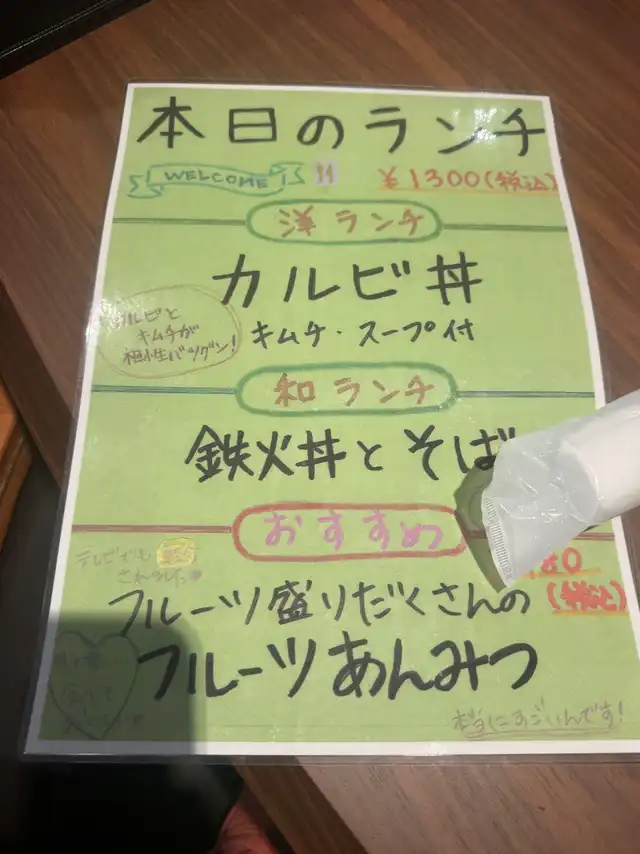 本日のランチ
WELCOME 11 ¥1300(税込)
洋ランチ
カルビ丼
カルビと
キムチが
相性バツグン!
キムチ・スープ付
和ランチ
鉄火丼とそば
おすすめ
テレビでも
されました
80
(税込)
フルーツ盛りだくさんの
フルーツあんみつ
本当にすごいんです!